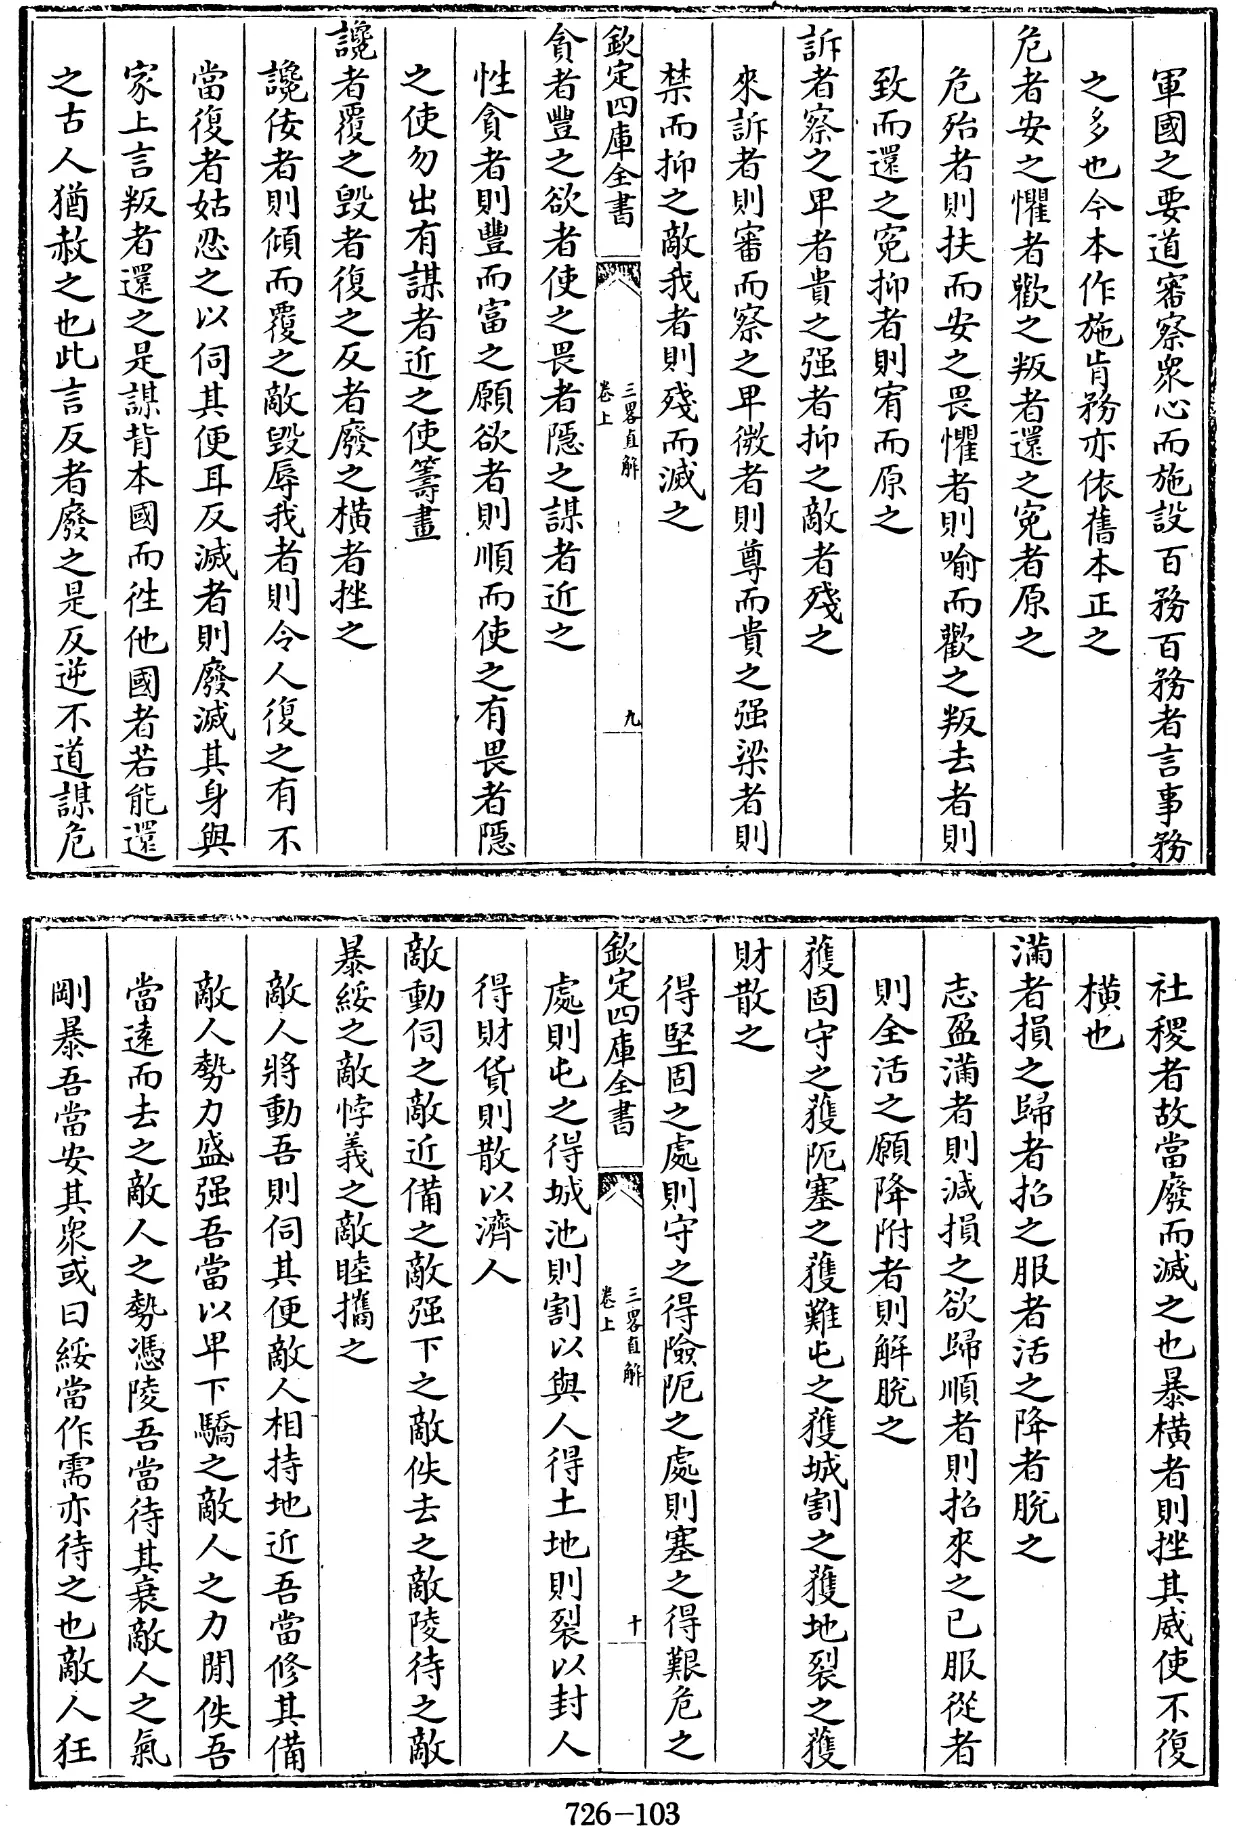 軍國之要道審察衆心而施設百務百務者言事務
之多也今本作施肯務亦依舊本正之
危者安之懼者歡之叛者還之寃者原之
危殆者則扶而安之畏懼者則喻而歡之叛去者則
致而還之寃抑者則宥而原之
訴者察之卑者貴之强者抑之敵者殘之
來訴者則審而察之卑微者則尊而貴之强梁者則
禁而抑之敵我者則殘而滅之
欽定四庫全書
三畧直解
卷上
九
貪者豐之欲者使之畏者隱之謀者近之
性貪者則豐而富之願欲者則順而使之有畏者隱
之使勿出有謀者近之使籌畫
讒者覆之毀者復之反者廢之橫者挫之
讒佞者則傾而覆之敵毀辱我者則令人復之有不
當復者姑忍之以伺其便耳反滅者則廢滅其身與
家上言叛者還之是謀背本國而徃他國者若能還
之古人猶赦之也此言反者廢之是反逆不道謀危
社稷者故當廢而滅之也暴橫者則挫其威使不復
橫也
滿者損之歸者招之服者活之降者脫之
志盈滿者則減損之欲歸順者則招來之已服從者
則全活之願降附者則解脫之
獲固守之獲阨塞之獲難屯之獲城割之獲地裂之獲
財散之
得堅固之處則守之得險阨之處則塞之得艱危之
欽定四庫全書
三畧直解
卷上
十
處則屯之得城池則割以與人得土地則裂以封人
得財貨則散以濟人
敵動伺之敵近備之敵强下之敵佚去之敵陵待之敵
暴綏之敵悖義之敵睦攜之
敵人將動吾則伺其便敵人相持地近吾當修其備
敵人勢力盛强吾當以卑下驕之敵人之力閒佚吾
當遠而去之敵人之勢憑陵吾當待其衰敵人之氣
剛暴吾當安其衆或曰綏當作需亦待之也敵人狂
726-103